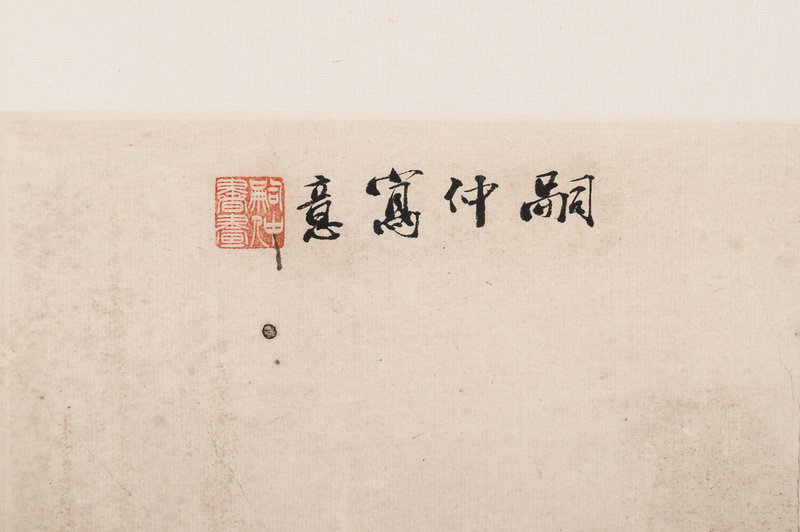 嗣仲寫意
嗣仲書畫